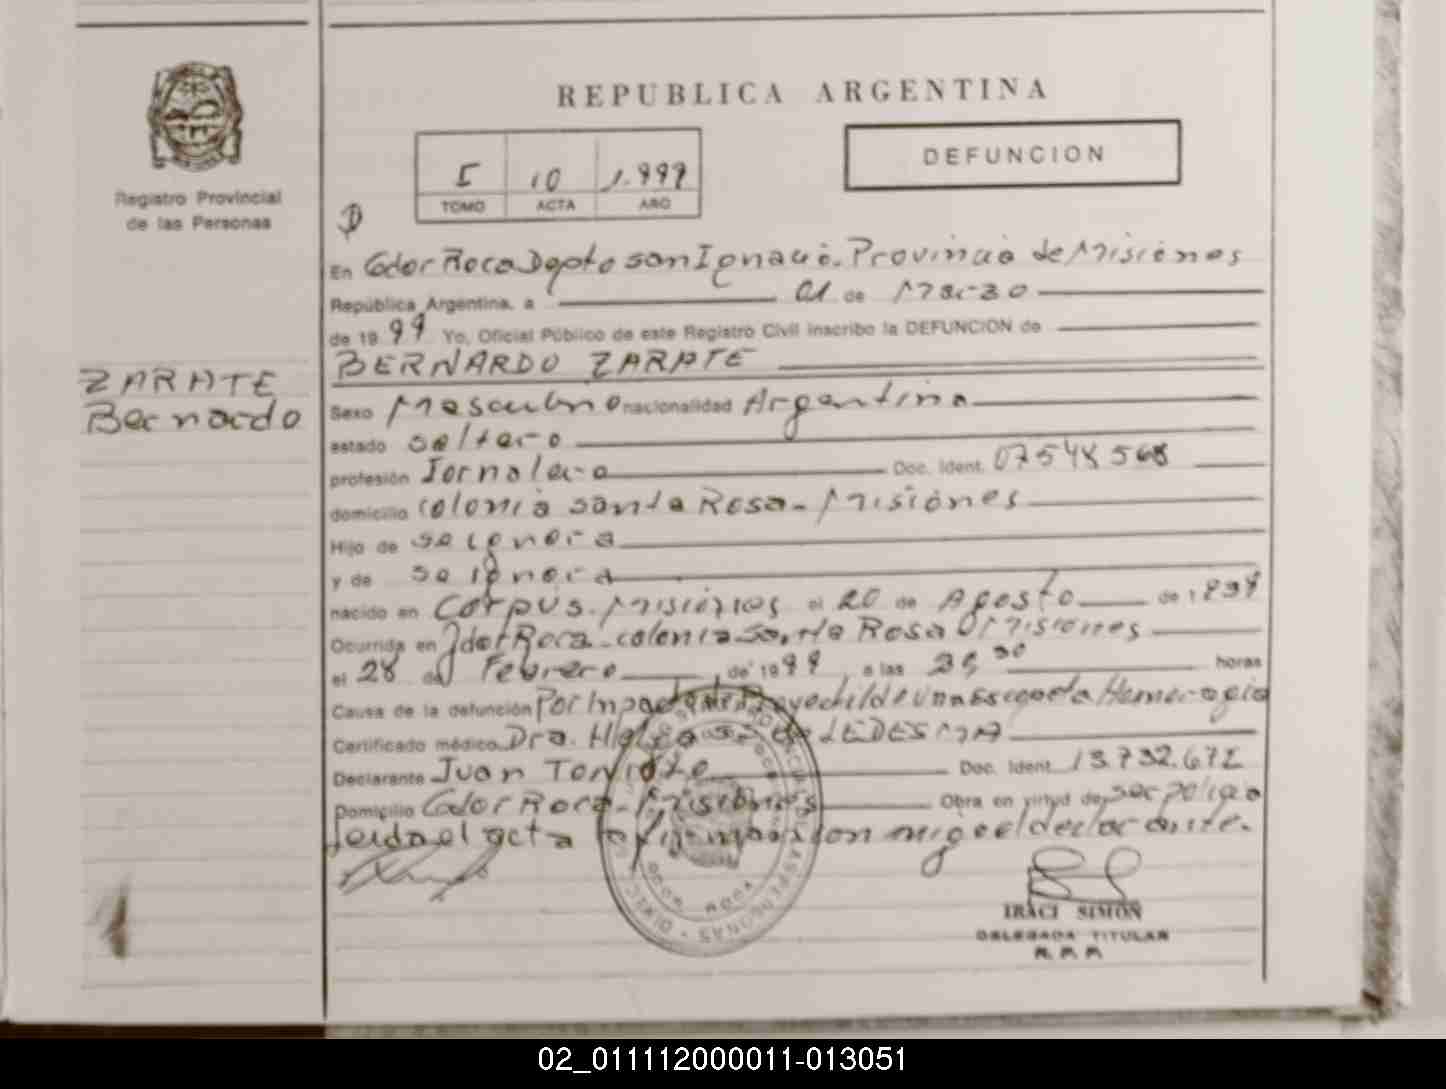 REPUBLICA ARGENTINA
I 10 1.999
TOMO ACTA AÑO
DEFUNCION
Registro Provincial
de las Personas
ZARATE
Bernardo
En Gdor Roca Dpto san Ignacio. Provincia de Misiones
República Argentina, a 01 de Marzo
de 1999 Yo, Oficial Público de este Registro Civil inscribo la DEFUNCION de
BERNARDO ZARATE
Sexo Masculino nacionalidad Argentina
estado soltero
profesión Jornalero Doc. Ident. 07548568
domicilio colonia santa Rosa - Misiones
Hijo de se ignora
y de se ignora
nacido en Corpus - Misiones el 20 de Agosto de 1
Ocurrida en Gdor Roca - colonia Santa Rosa Misiones
el 28 de Febrero de 1999 a las horas
Causa de la defunción Por Impacto de Proyectil de una Escopeta Hemorragia
Certificado médico Dra. de LEDESMA
Declarante Juan Doc. Ident. 13.732.672
Domicilio Gdor Roca - Misiones Obra en virtud de ser policia
leida el acta la firma con migo el declarante.
IRACI SIMON
DELEGADA TITULAR
R. P. P.
02_011112000011-013051